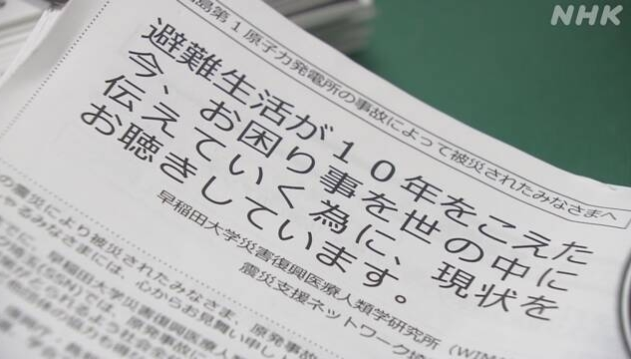 NHK
島第1原子力発電所の事故によって被災されたみなさまへ
避難生活が10年をこえた
今、お困り事を世の中に
伝えていく為に、現状を
お聴きしています。
早稲田大学災害復興医療人類学研究所（WIMA
震災支援ネットワーク埼
の震災により被災されたみなさま、原発事故
やるみなさまには、心からお見舞い申し上
早稲田大学災害復興医療人
では、原発事故